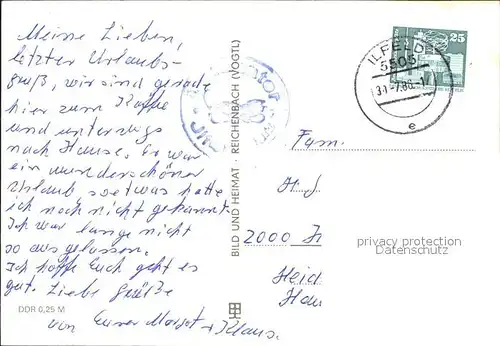 Meine Lieben,
letzter Urlaubs-
gruß, wir sind gerade
hier zum Kaffe
und unterwegs
nach Hause. Es war
ein wunderschöner
Urlaub soetwas hatte
ich noch nicht gekannt.
Ich war lange nicht
so ausgelassen.
Ich hoffe Euch geht es
gut. Liebe Grüße
von Eurer Margot + Klaus.
DDR 0,25 M
BILD UND HEIMAT · REICHENBACH (VOGTL)
25
ILFELD
5505
e
Fam.
H.
2000
Heid
privacy protection
Datenschutz